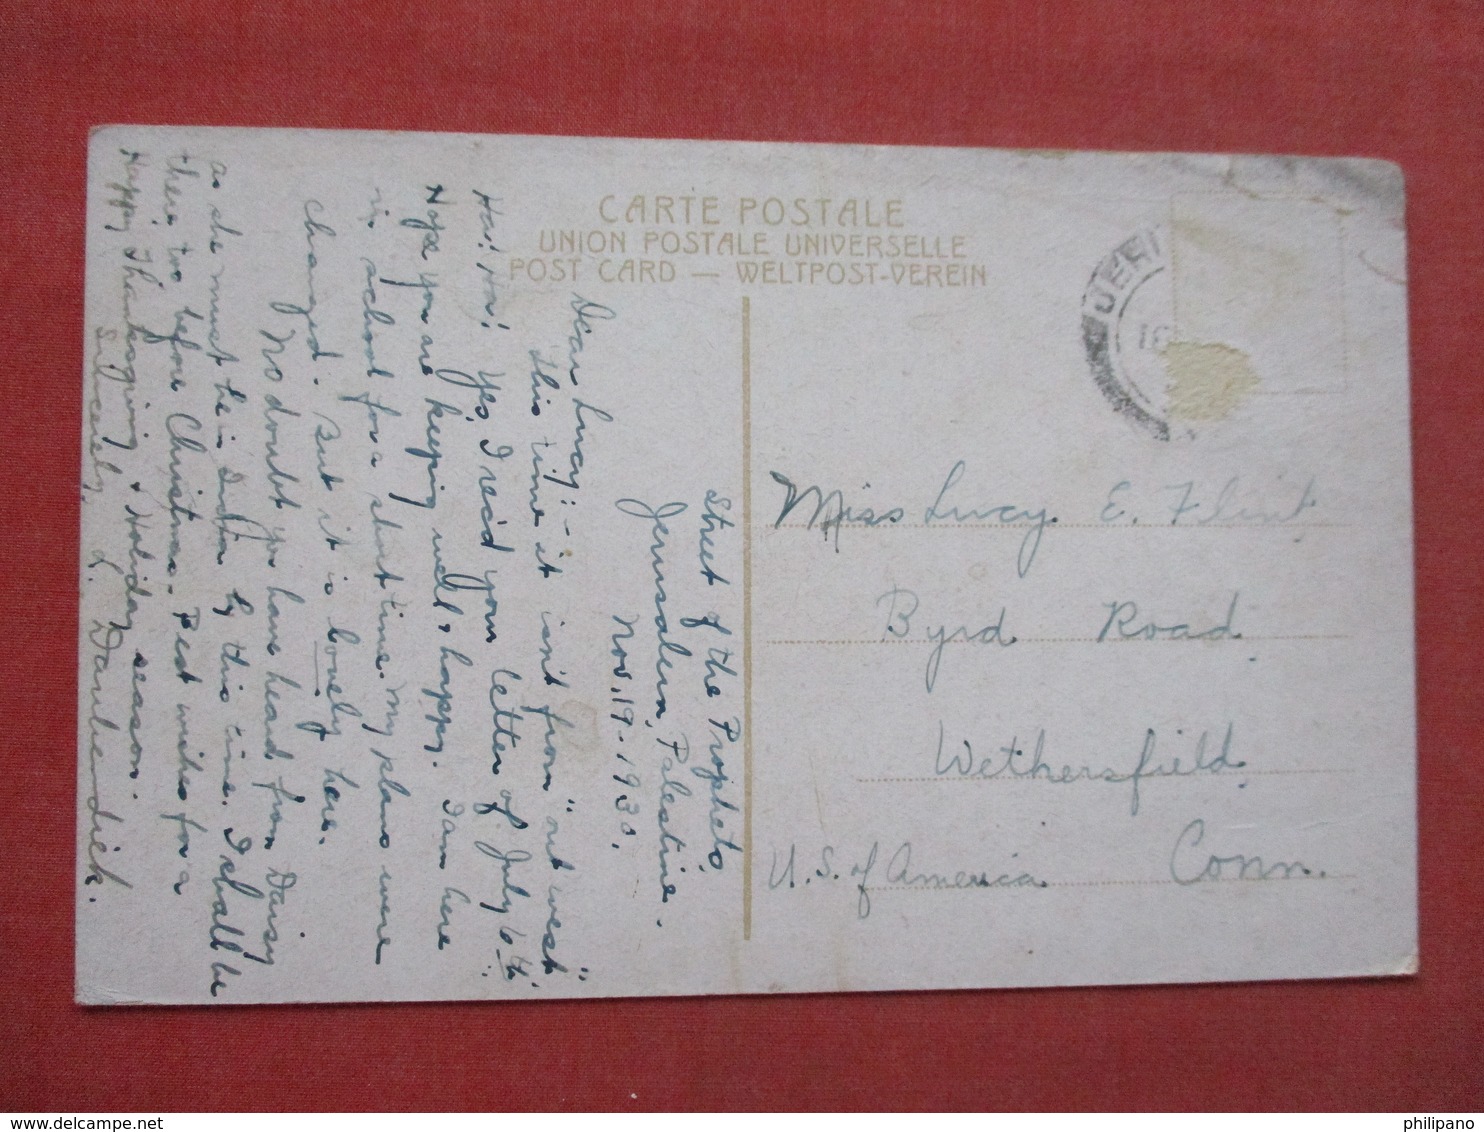 CARTE POSTALE
UNION POSTALE UNIVERSELLE
POST CARD — WELTPOST-VEREIN
Street of the Prophets,
Jerusalem, Palestine.
Nov. 19-1930.
Dear Lucy:-
This time it isn't from "out west"
Ha! Ha! Yes, I rec'd your letter of July 6th.
Hope you are keeping well & happy. I am here
in school for a short time. My plans were
changed. But it is lovely here.
No doubt you have heard from Daisy
as she must be in India by this time. I shall be
there too before Christmas. Best wishes for a
Happy Thanksgiving & Holiday season.
Sincerely,
JERU
Miss Lucy E. Flint
Byrd Road
Wethersfield,
Conn.
U.S. of America
philipano
delcampe.net